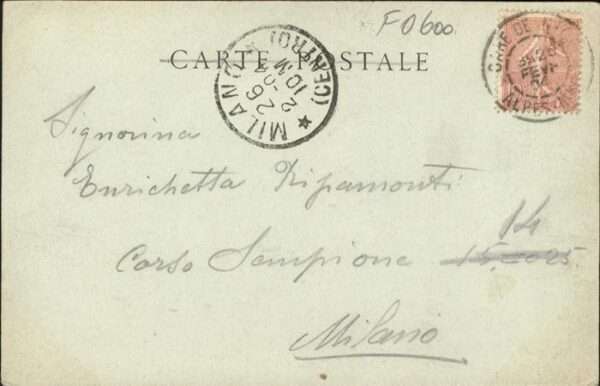 F0600
CARTE POSTALE
MILANO (CENTRO)
26
10 M
GARE DE
ALPES
Signorina
Enrichetta Ripamonti
14
Corso Sempione 15
Milano